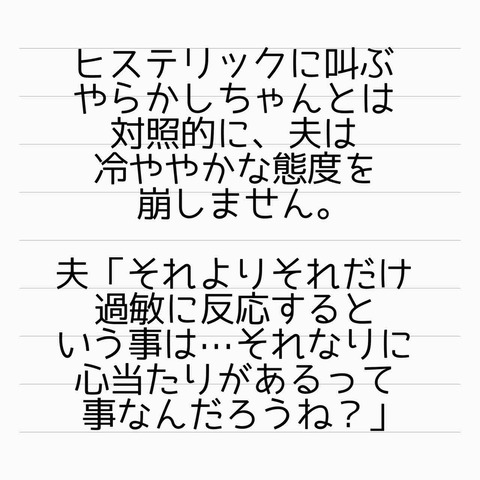 ヒステリックに叫ぶ
やらかしちゃんとは
対照的に、夫は
冷ややかな態度を
崩しません。
夫「それよりそれだけ
過敏に反応すると
いう事は…それなりに
心当たりがあるって
事なんだろうね？」